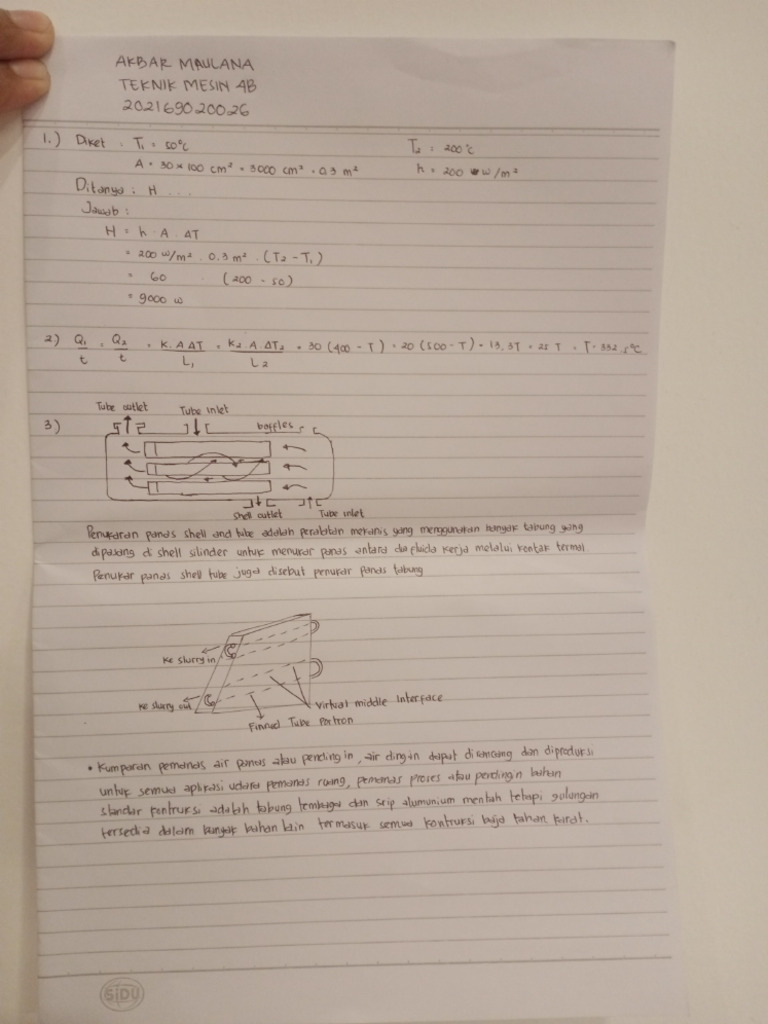 AKBAR MAULANA
TEKNIK MESIN 4B
202169020026
1.) Diket : T₁ = 50°C T₂ = 200°C
A = 30 × 100 cm² = 3000 cm² = 0.3 m² h = 200 w/m²
Ditanya : H ...
Jawab :
H = h . A . ΔT
= 200 w/m² . 0.3 m² . (T₂ - T₁)
= 60 (200 - 50)
= 9000 w
2) Q₁/t = Q₂/t = K . A ΔT/L₁ = K₂ A . ΔT₂/L₂ = 30 (400 - T) = 20 (500 - T) = 13,3T = 25 T = T = 332,5°C
Tube outlet Tube inlet
3) baffles
Shell outlet Tube inlet
Penukaran panas shell and tube adalah peralatan mekanis yang menggunakan banyak tabung yang
dipasang di shell silinder untuk menukar panas antara dua fluida kerja melalui kontak termal.
Penukar panas shell tube juga disebut penukar panas tabung
Ke slurry in
Ke slurry out Virtual middle Interface
Finned Tube Portron
• Kumparan pemanas air panas atau pendingin, air dingin dapat dirancang dan diproduksi
untuk semua aplikasi udara pemanas ruang, pemanas proses atau pendingin bahan
standar kontruksi adalah tabung tembaga dan sirip alumunium mentah tetapi gulungan
tersedia dalam banyak bahan lain termasuk semua kontruksi baja tahan karat.
SIDU